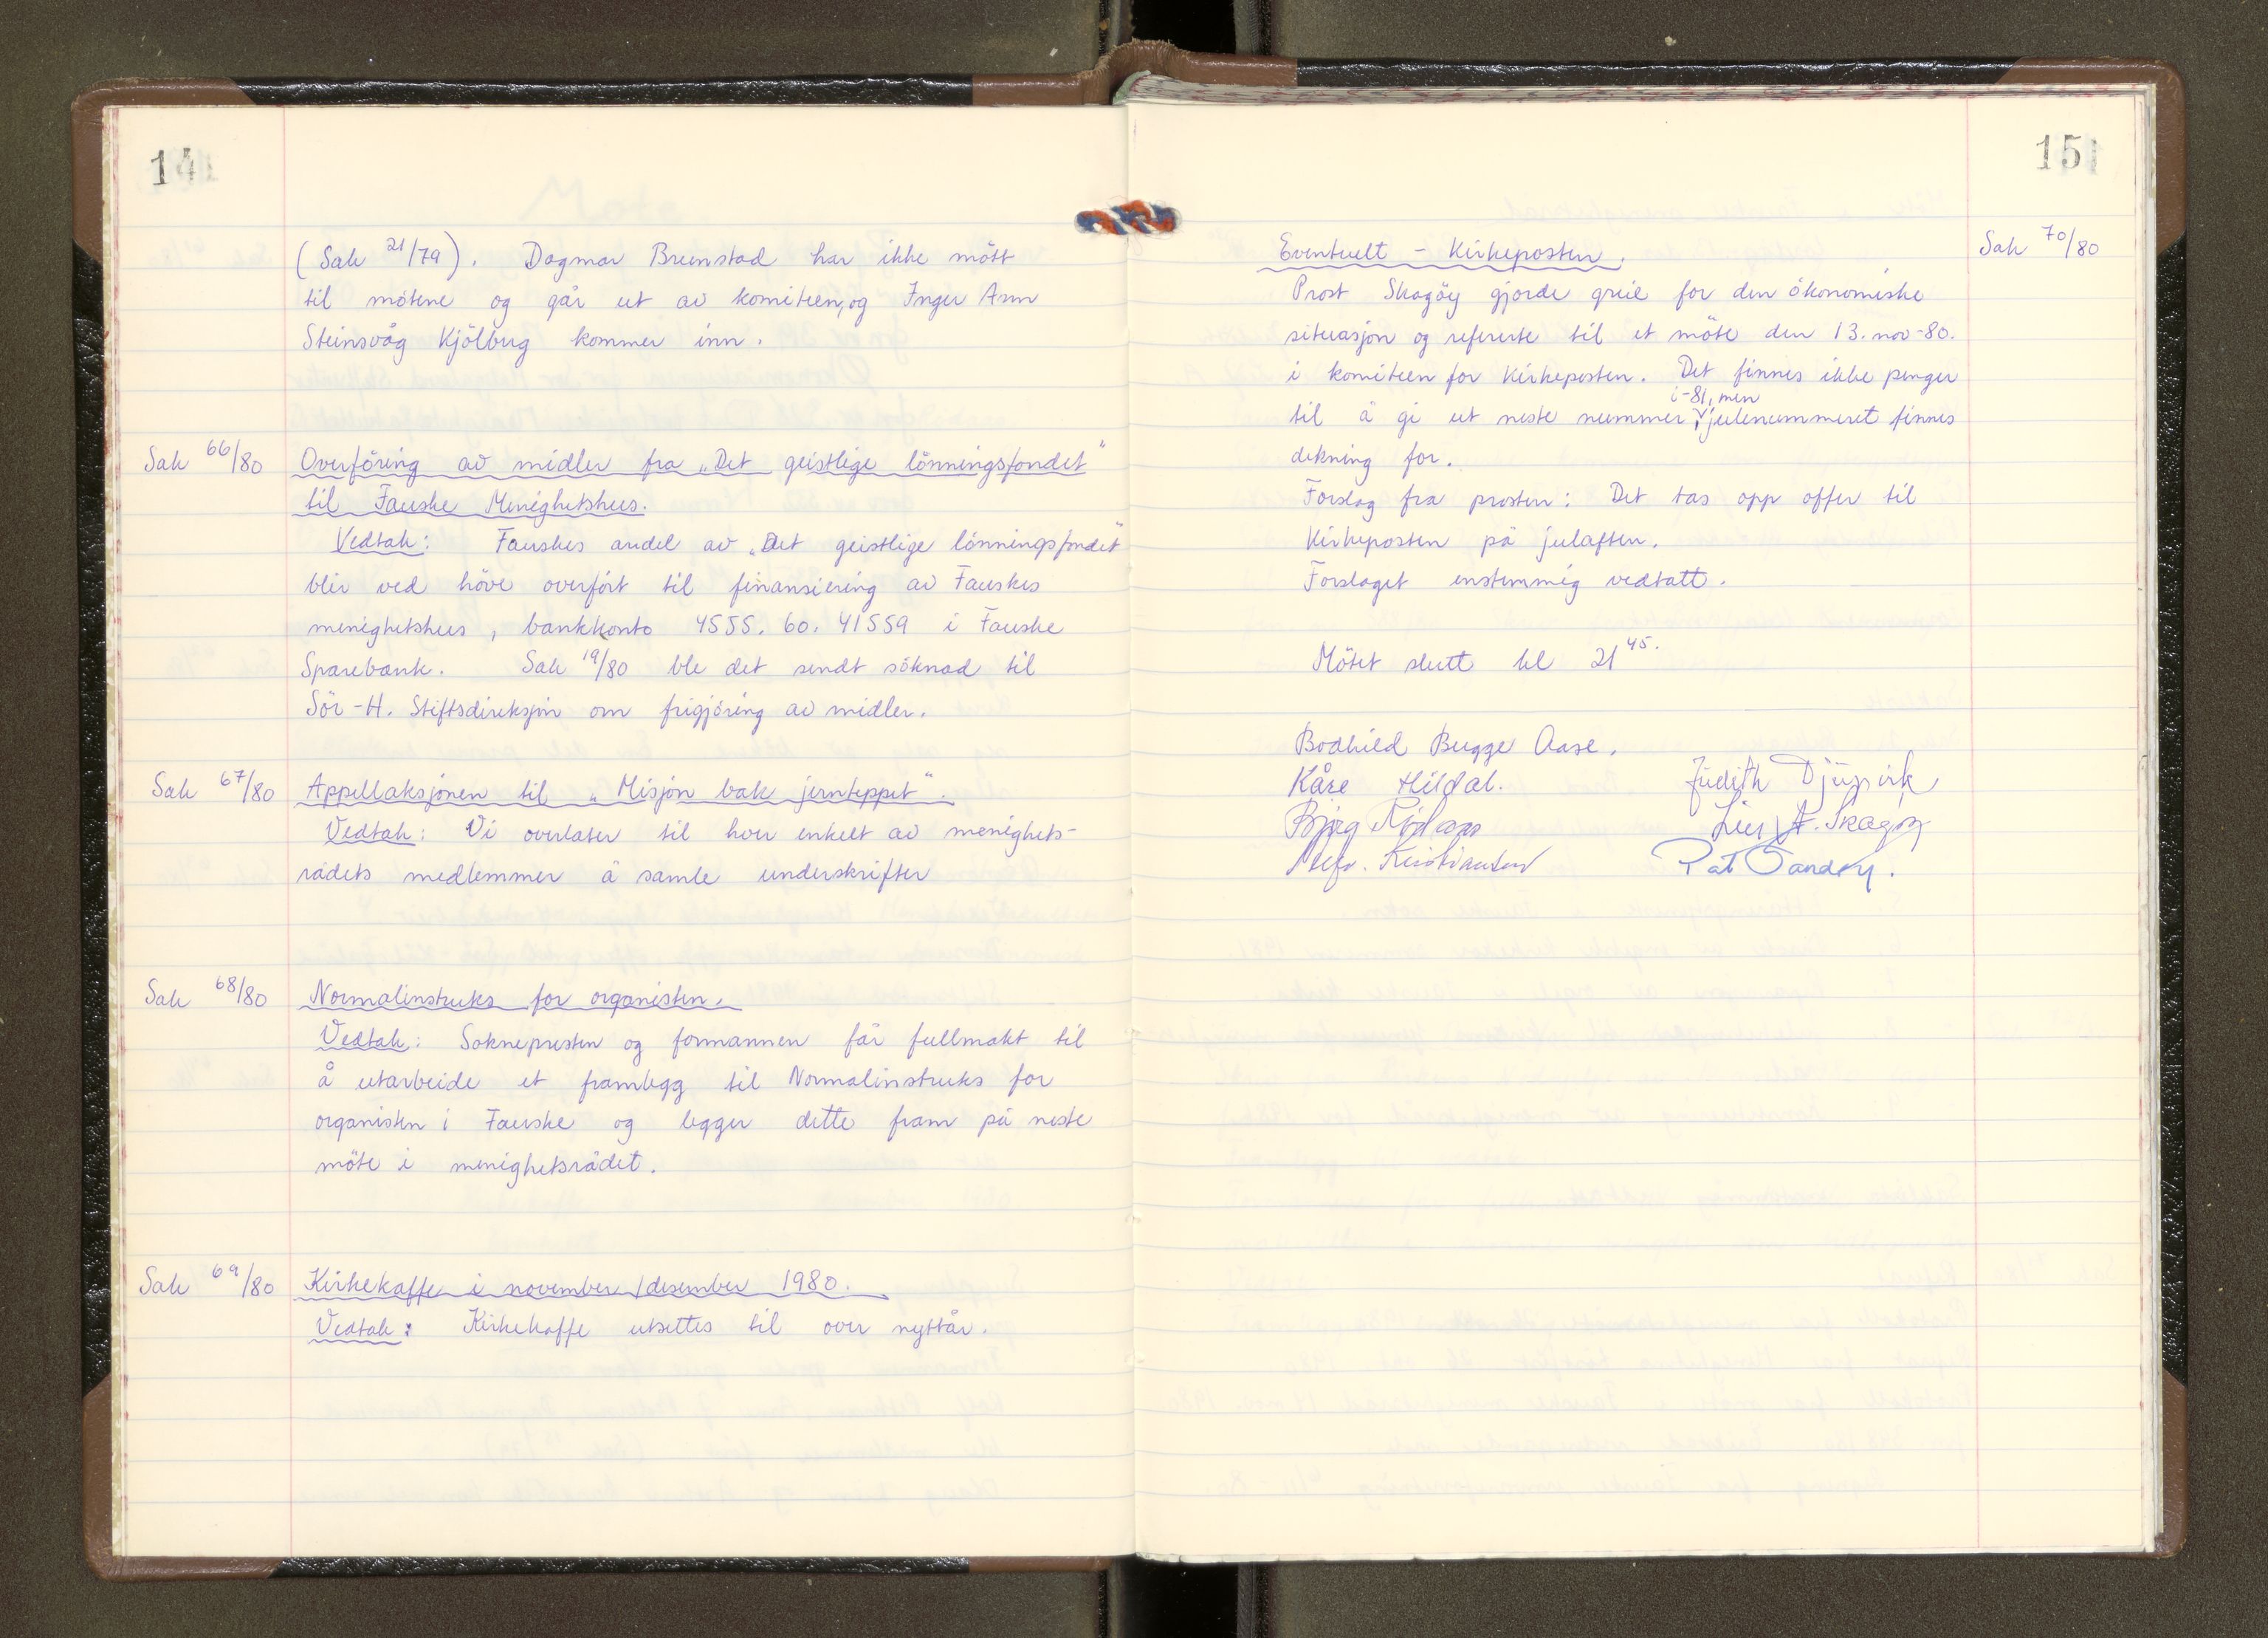 14
(Sak 21/79). Dagmar Breunstad har ikke mött
til mötene og går ut av komiteen, og Inger Ann
Steinsvåg Kjölberg kommer inn.
Sak 66/80 Overföring av midler fra „Det geistlige lönningsfondet"
til Fauske Menighetshus.
Vedtak: Fauskes andel av „Det geistlige lönningsfondet"
blir ved höve overfört til finansiering av Fauskes
menighetshus, bankkonto 4555. 60. 41559 i Fauske
Sparebank. Sak 19/80 ble det sendt söknad til
Sör-H. Stiftsdireksjon om frigjöring av midler.
Sak 67/80 Appellaksjonen til „Misjon bak jernteppet".
Vedtak: Vi overlater til hver enkelt av menighets-
rådets medlemmer å samle underskrifter
Sak 68/80 Normalinstruks for organisten.
Vedtak: Soknepresten og formannen får fullmakt til
å utarbeide et framlegg til Normalinstruks for
organisten i Fauske og legger dette fram på neste
möte i menighetsrådet.
Sak 69/80 Kirkekaffe i november/desember 1980.
Vedtak: Kirkekaffe utsettes til over nyttår.
15
Eventuelt - Kirkeposten. Sak 70/80
Prost Skagöy gjorde greie for den ökonomiske
situasjon og refererte til et möte den 13. nov-80.
i komiteen for Kirkeposten. Det finnes ikke penger
i -81, men
til å gi ut neste nummer, julenummeret finnes
dekning for.
Forslag fra prosten: Det tas opp offer til
Kirkeposten på julaften.
Forslaget enstemmig vedtatt.
Mötet slutt kl 21 45.
Bodhild Bugge Aase.
Kåre Hildal. Judith Djupvik
Bjørg A. Skagöy
Kristiansen Pat Sandøy.